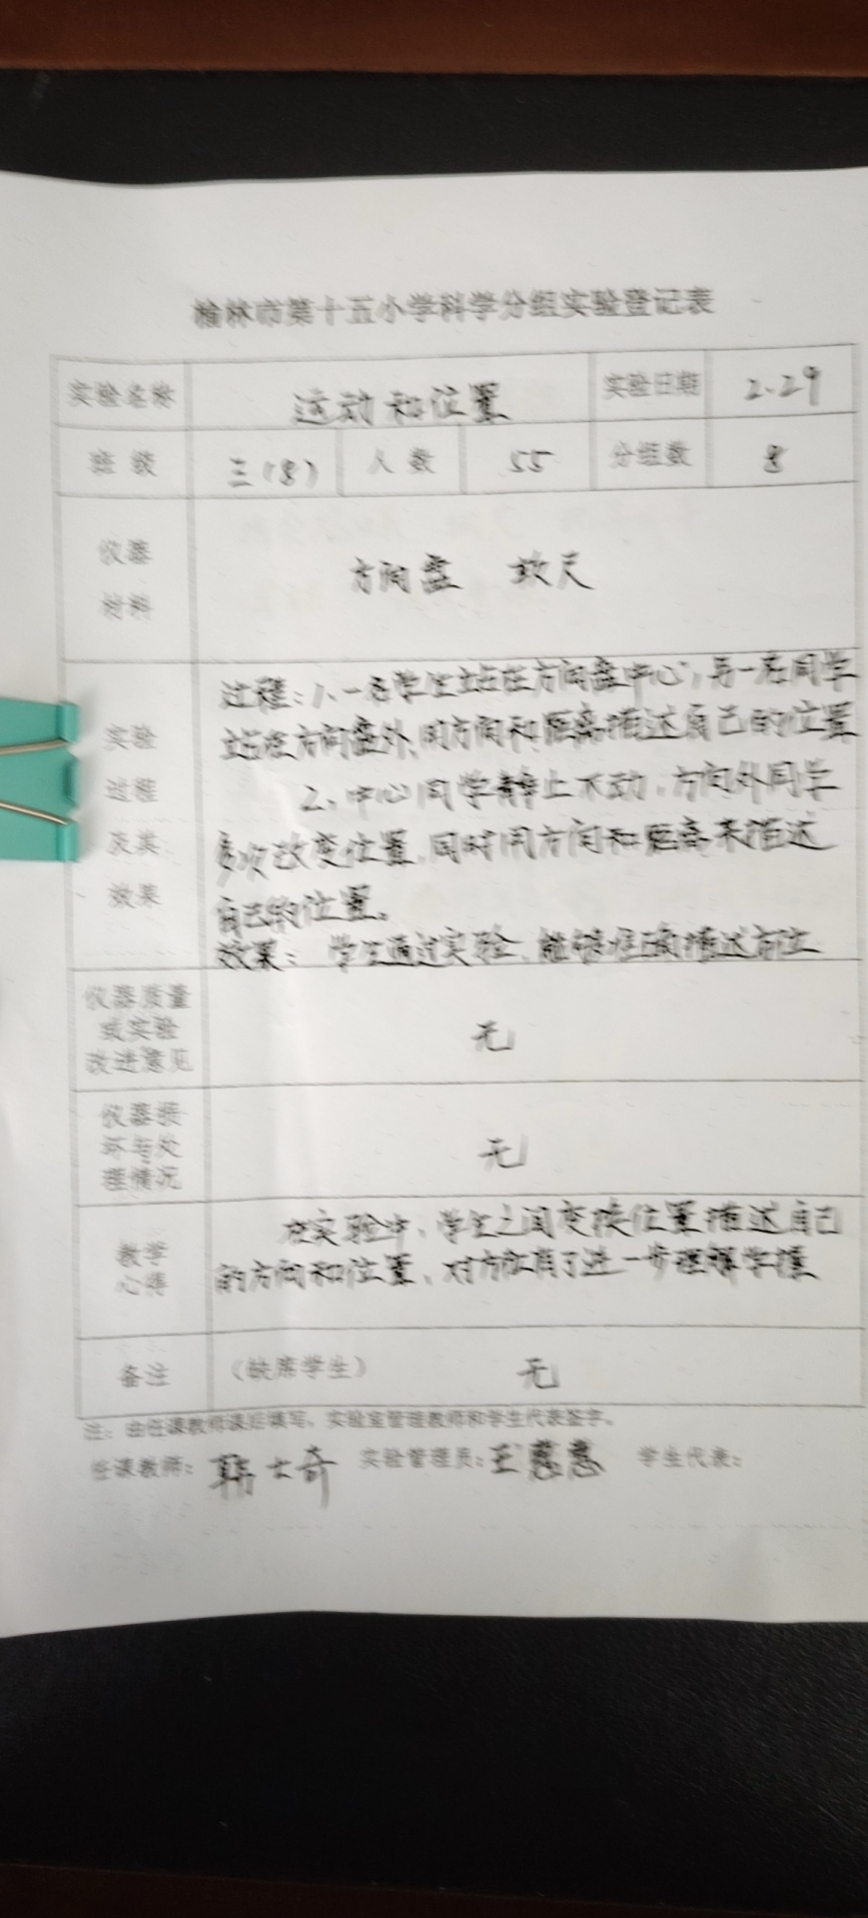 榆林市第十五小学科学分组实验登记表
实验名称 运动和位置 实验日期 2.29
班级 三(8) 人数 55 分组数 8
仪器 方向盘 软尺
材料
过程:1、一名学生站在方向盘中心,另一名同学
实验 站在方向盘外,用方向和距离描述自己的位置
过程 2、中心同学静止不动,方向外同学
及其 多次改变位置,同时用方向和距离来描述
效果 自己的位置。
效果: 学生通过实验,能够准确描述方位
仪器质量
或实验 无
改进意见
仪器损
坏与处 无
理情况
在实验中,学生之间变换位置描述自己
教学 的方向和位置、对方位有了进一步理解掌握
心得
备注 (缺席学生) 无
注:由任课教师课后填写,实验室管理教师和学生代表签字。
任课教师:韩士奇 实验管理员:王慧慧 学生代表: